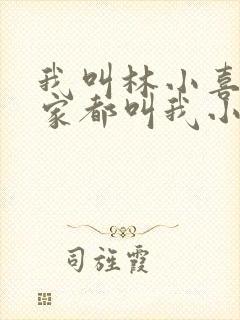 我叫林小喜
家都叫我小
司旌霞